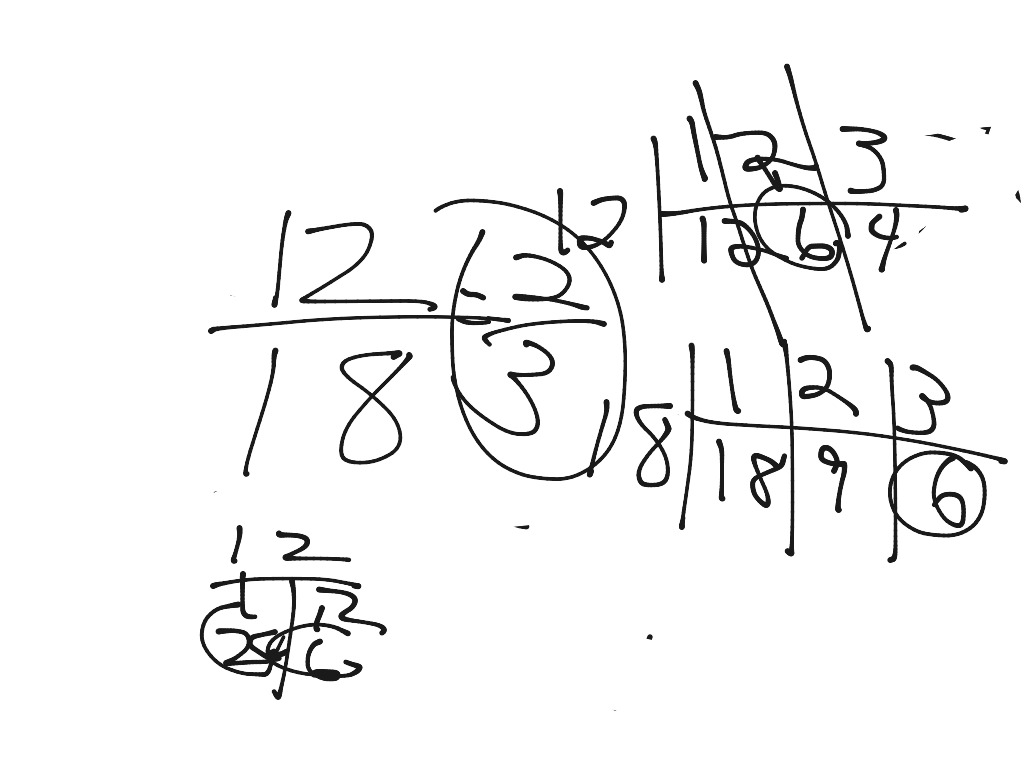 12 | 1 2 3
12 6 4
12/18 = 2/3
18 | 1 2 3
18 9 6
12
1 12
2 6